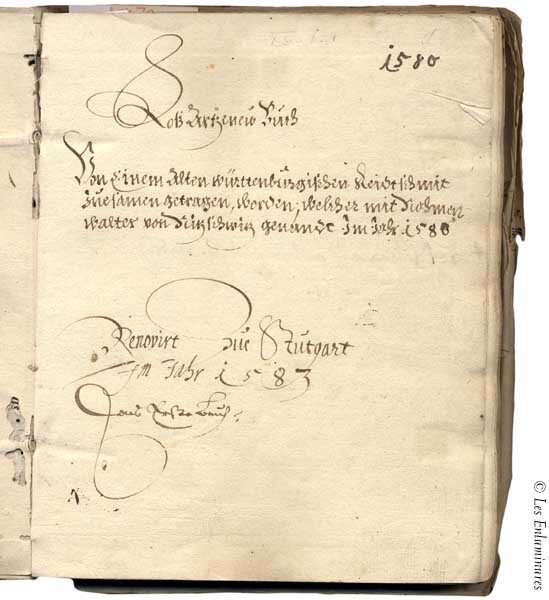 1580
Roß Artzeney Buch
Von Einem Alten württenburgischen Reidtschmit
zuesamen getragen, worden, welcher mit Nahmen
walter von genandt Im Jahr 1580
Renovirt zue Stutgart
Im Jahr 1583
Das Erste Buch
© Les Enluminures